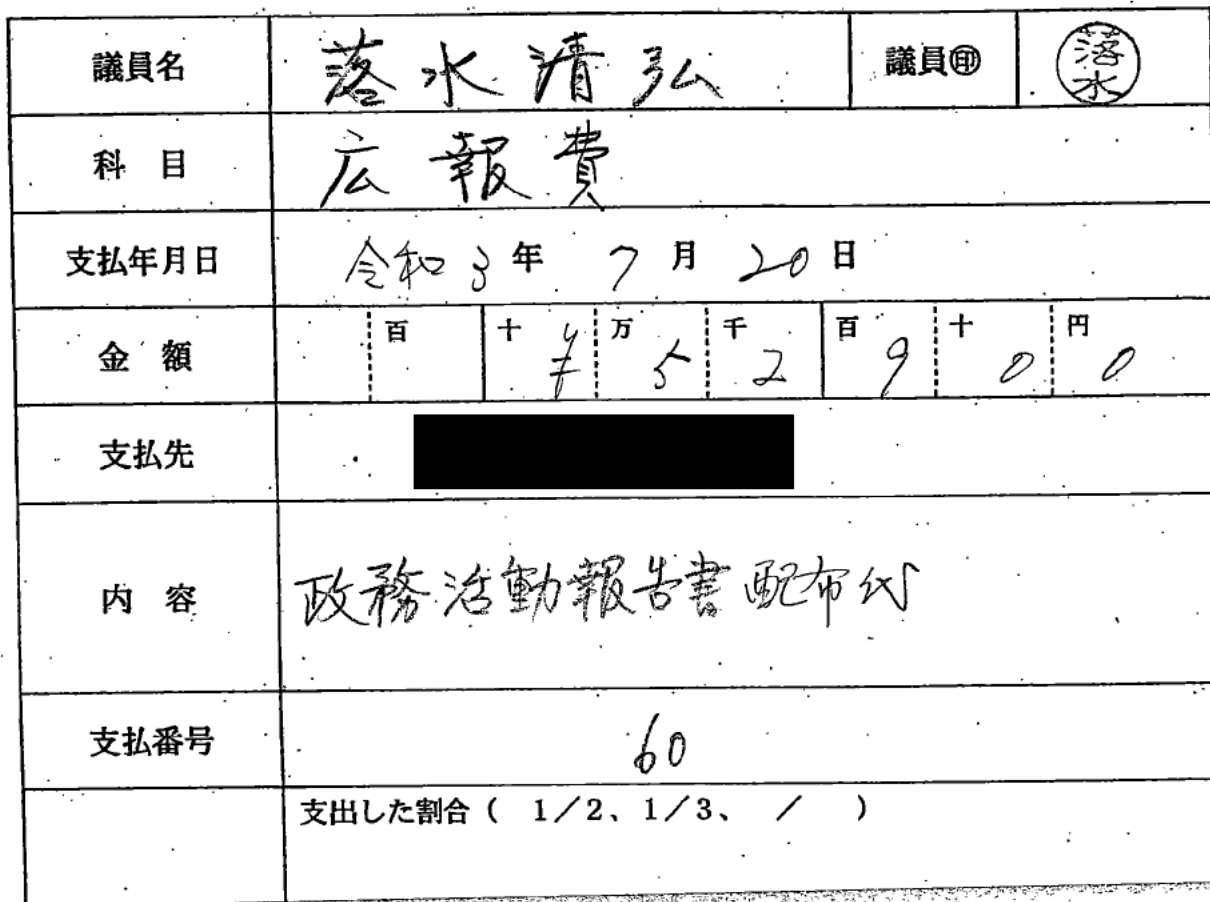 議員名 落水清弘 議員㊞ 落水
科目 広報費
支払年月日 令和3年7月20日
金額 百 十 ¥ 万 5 千 2 百 9 十 0 円 0
支払先
内容 政務活動報告書配布代
支払番号 60
支出した割合( 1/2、1/3、 / )